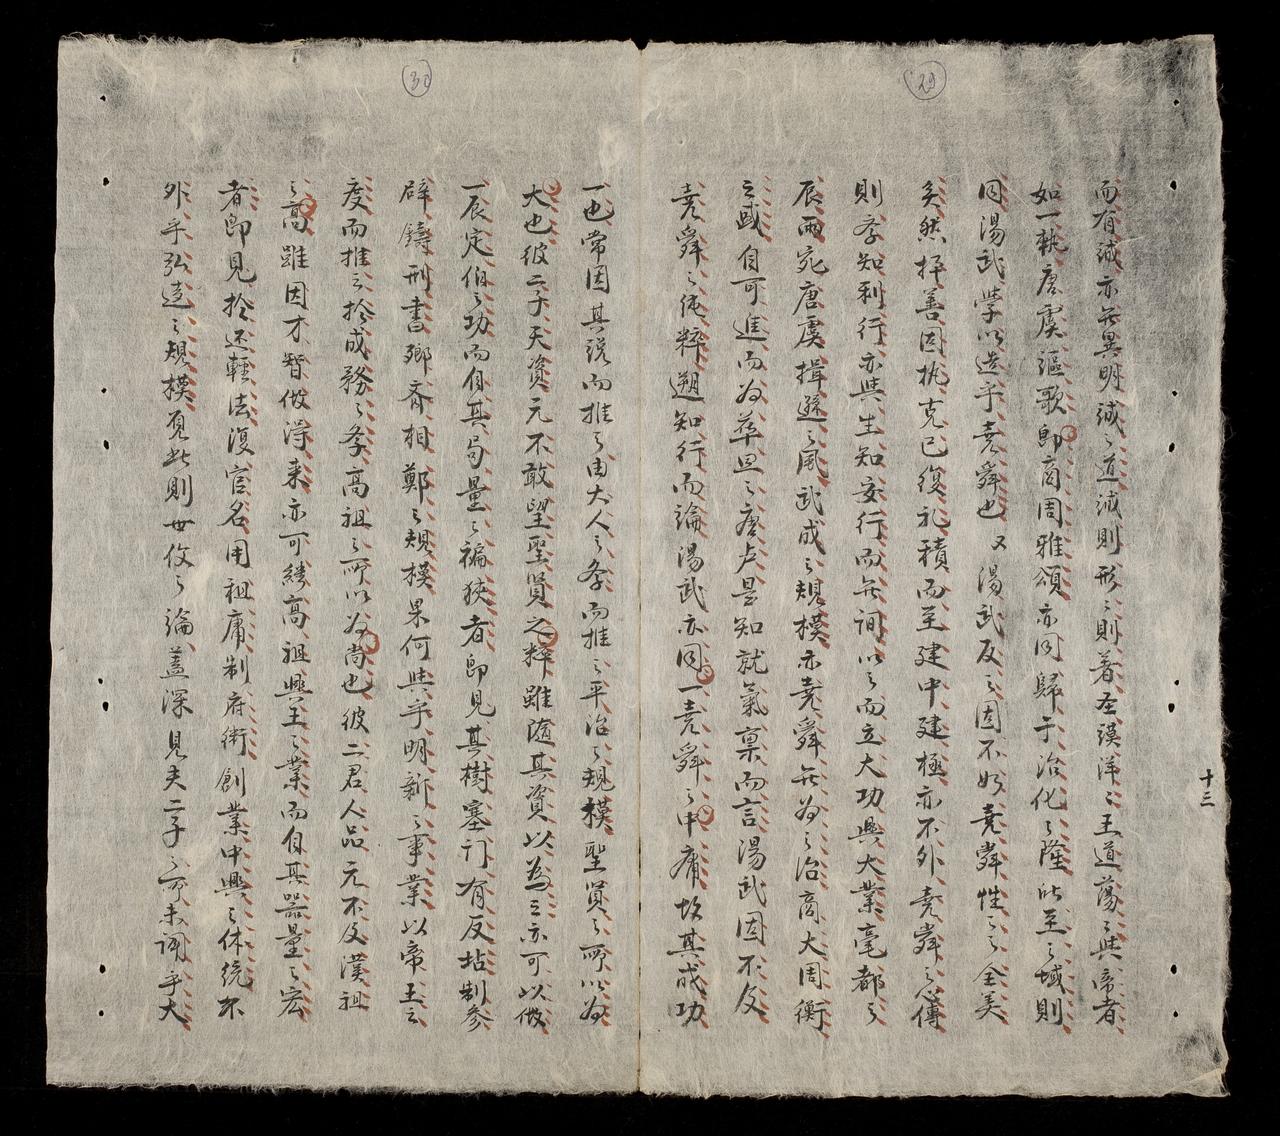 29
而有誠亦無異明誠之道誠則形々則著圣謨洋々王道蕩々與帝者
如一執唐虞謳歌即商周雅頌亦同歸于治化之隆此至之域則
同湯武學以造乎堯舜也又湯武反之固不如堯舜性之之全美
矣然擇善固执克已復礼積而至建中建極亦不外堯舜之心傳
則孝知利行亦與生知安行而無间以之而立大功興大業毫都之
辰兩宛唐虞揖遜之風武成之規模亦堯舜無为之治商大周衡
之盛自可進而为華思之唐虞是知就氣稟而言湯武固不及
堯舜之純粹遡知行而論湯武亦同一堯舜之中庸故其成功
十三
30
一也常因其説而推之由大人之孝而推之平治之規模聖賢之所以为
大也彼二子天資元不敢望聖賢之粹雖隨其資以為之亦可以做
一辰定伯之功而自其局量之褊狹者即見其樹塞门有反坫制参
辟鑄刑書鄉齐相鄭之規模果何與乎明新之事業以帝王之
度而推之於成務之孝高祖之所以为尚也彼二君人品元不及漢祖
之高雖因才智做得来亦可繼高祖興王之業而自其器量之宏
者即見於还轻法復官名用租庸制府衛創業中興之体統不
外乎弘遠之規模觅此則世佼之論蓋深見夫二子之所未闻乎大